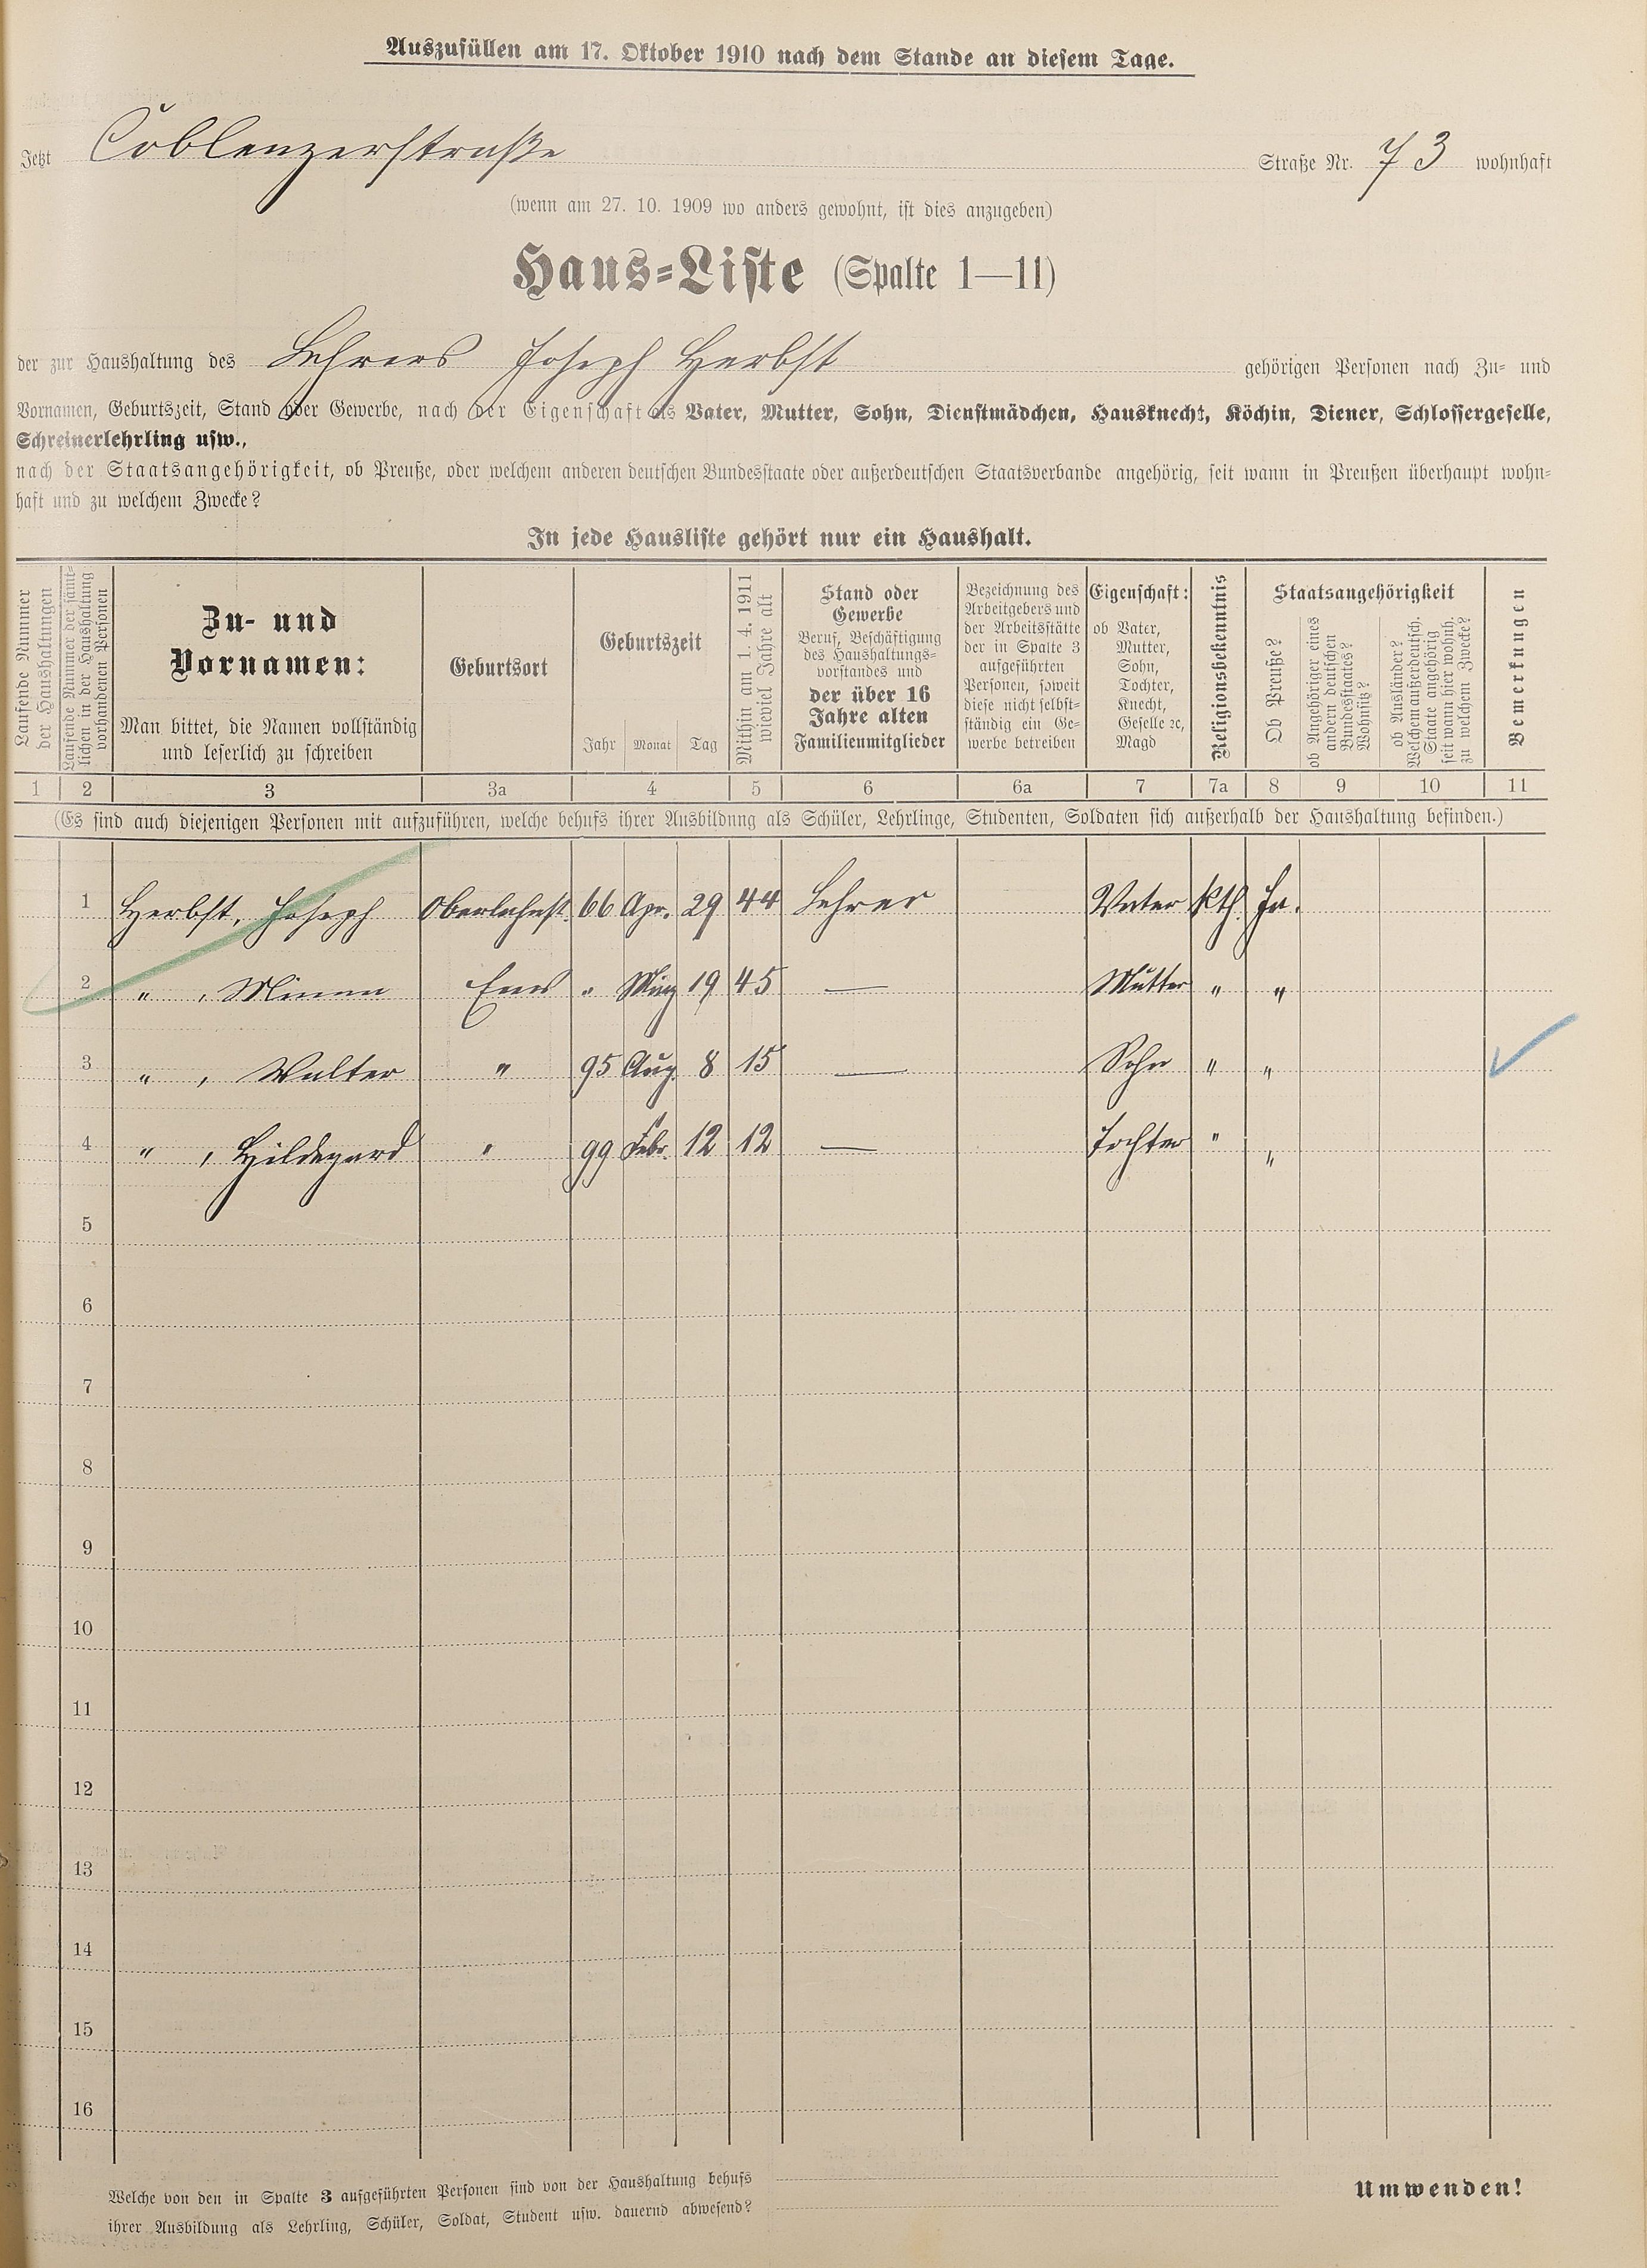 Auszufüllen am 17. Oktober 1910 nach dem Stande an diesem Tage.
Jetzt Coblenzerstraße Straße Nr. 73 wohnhaft
(wenn am 27. 10. 1909 wo anders gewohnt, ist dies anzugeben)
Haus-Liste (Spalte 1—11)
der zur Haushaltung des Lehrers Joseph Herbst gehörigen Personen nach Zu- und
Vornamen, Geburtszeit, Stand oder Gewerbe, nach der Eigenschaft als Vater, Mutter, Sohn, Dienstmädchen, Hausknecht, Köchin, Diener, Schlossergeselle,
Schreinerlehrling usw.,
nach der Staatsangehörigkeit, ob Preuße, oder welchem anderen deutschen Bundesstaate oder außerdeutschen Staatsverbande angehörig, seit wann in Preußen überhaupt wohn-
haft und zu welchem Zwecke?
In jede Hausliste gehört nur ein Haushalt.
Laufende Nummer
der Haushaltungen
Laufende Nummer der sämt-
lichen in der Haushaltung
vorhandenen Personen
Zu- und
Vornamen:
Man bittet, die Namen vollständig
und leserlich zu schreiben
Geburtsort
Geburtszeit
Jahr Monat Tag
Mithin am 1. 4. 1911
wieviel Jahre alt
Stand oder
Gewerbe
Beruf, Beschäftigung
des Haushaltungs-
vorstandes und
der über 16
Jahre alten
Familienmitglieder
Bezeichnung des
Arbeitgebers und
der Arbeitsstätte
der in Spalte 3
aufgeführten
Personen, soweit
diese nicht selbst-
ständig ein Ge-
werbe betreiben
Eigenschaft:
ob Vater,
Mutter,
Sohn,
Tochter,
Knecht,
Geselle ꝛc,
Magd
Religionsbekenntnis
Staatsangehörigkeit
Ob Preuße?
ob Angehöriger eines
andern deutschen
Bundesstaates?
Wohnsitz?
ob Ausländer?
Welchem außerdeutsch.
Staate angehörig
seit wann hier wohnh.
zu welchem Zwecke?
Bemerkungen
1 2 3 3a 4 5 6 6a 7 7a 8 9 10 11
(Es sind auch diejenigen Personen mit aufzuführen, welche behufs ihrer Ausbildung als Schüler, Lehrlinge, Studenten, Soldaten sich außerhalb der Haushaltung befinden.)
1 Herbst, Joseph Oberlahnst. 66 Apr. 29 44 Lehrer Vater kth. Ja.
2 " , Minna Ems " März 19 45 — Mutter " "
3 " , Walter " 95 Aug. 8 15 — Sohn " "
4 " , Hildegard " 99 Febr. 12 12 — Tochter " "
5
6
7
8
9
10
11
12
13
14
15
16
Welche von den in Spalte 3 aufgeführten Personen sind von der Haushaltung behufs
ihrer Ausbildung als Lehrling, Schüler, Soldat, Student usw. dauernd abwesend?
Umwenden!